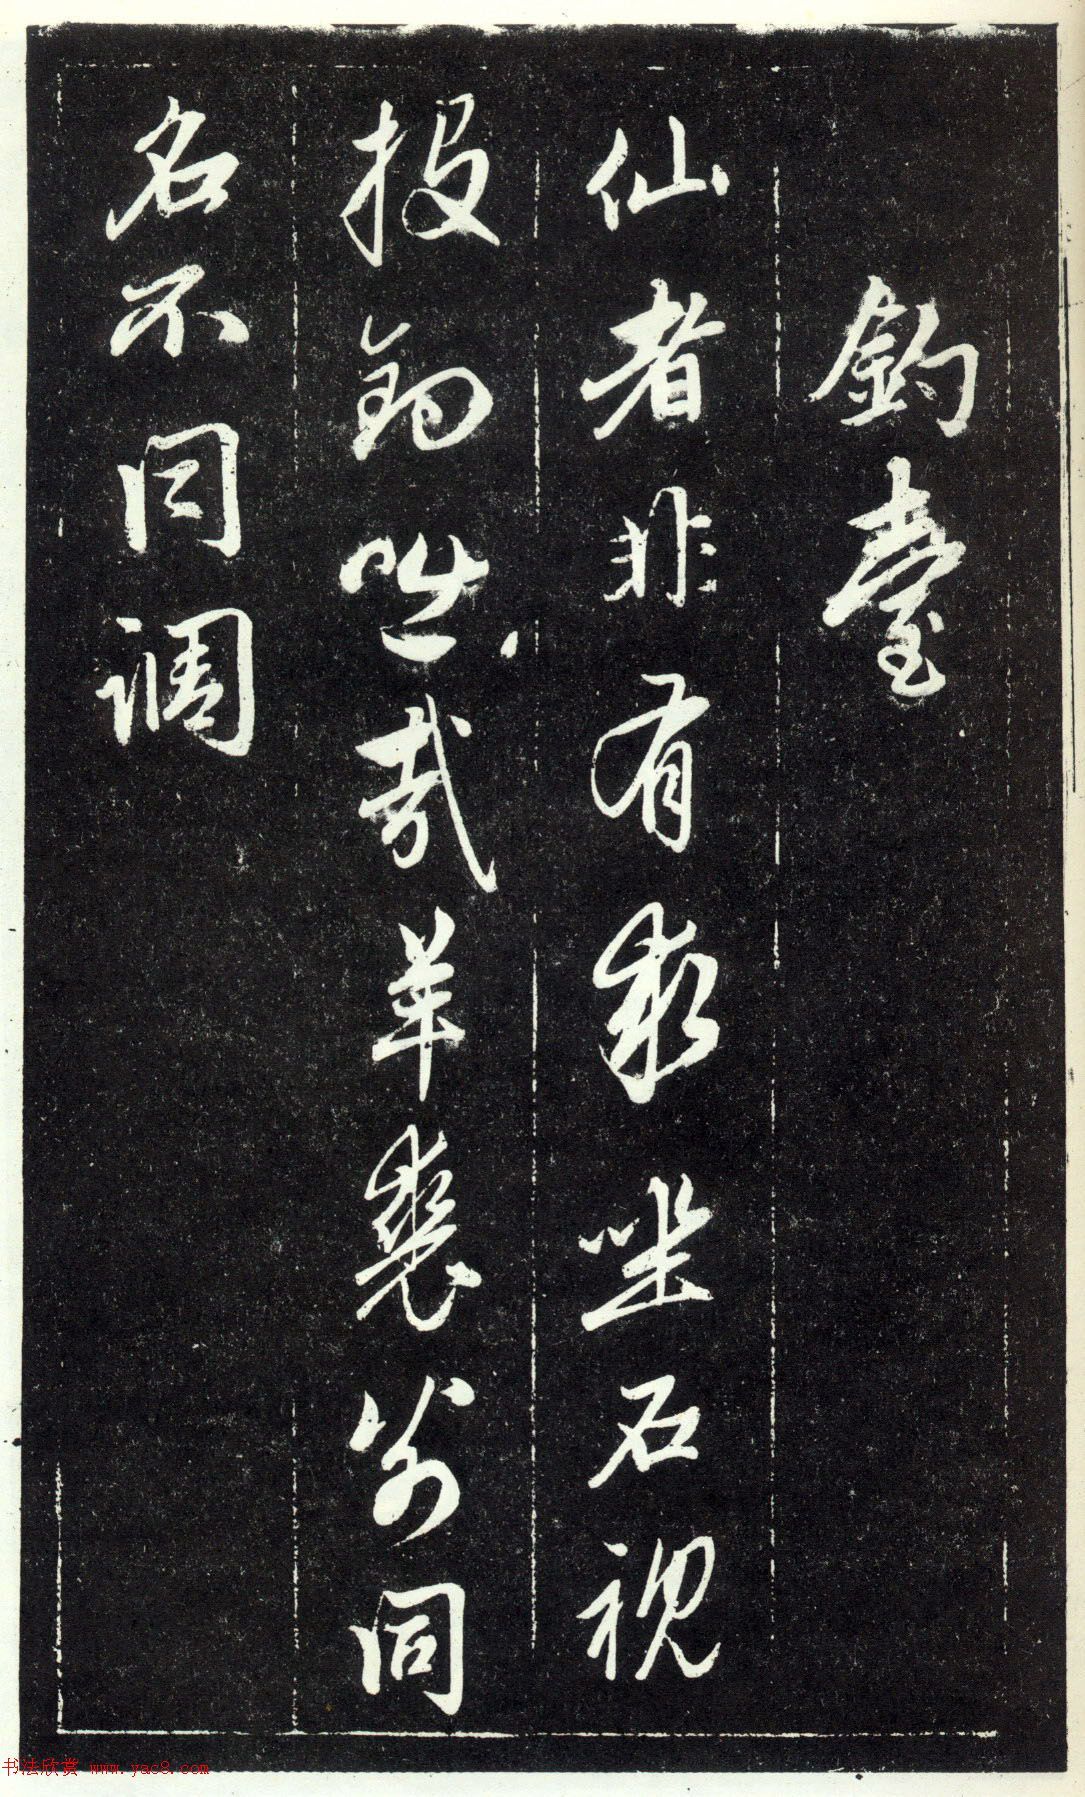 釣臺
仙者非有求坐石視
投釣咄哉羊裘翁同
名不同調
书法欣赏 www.yac8.com